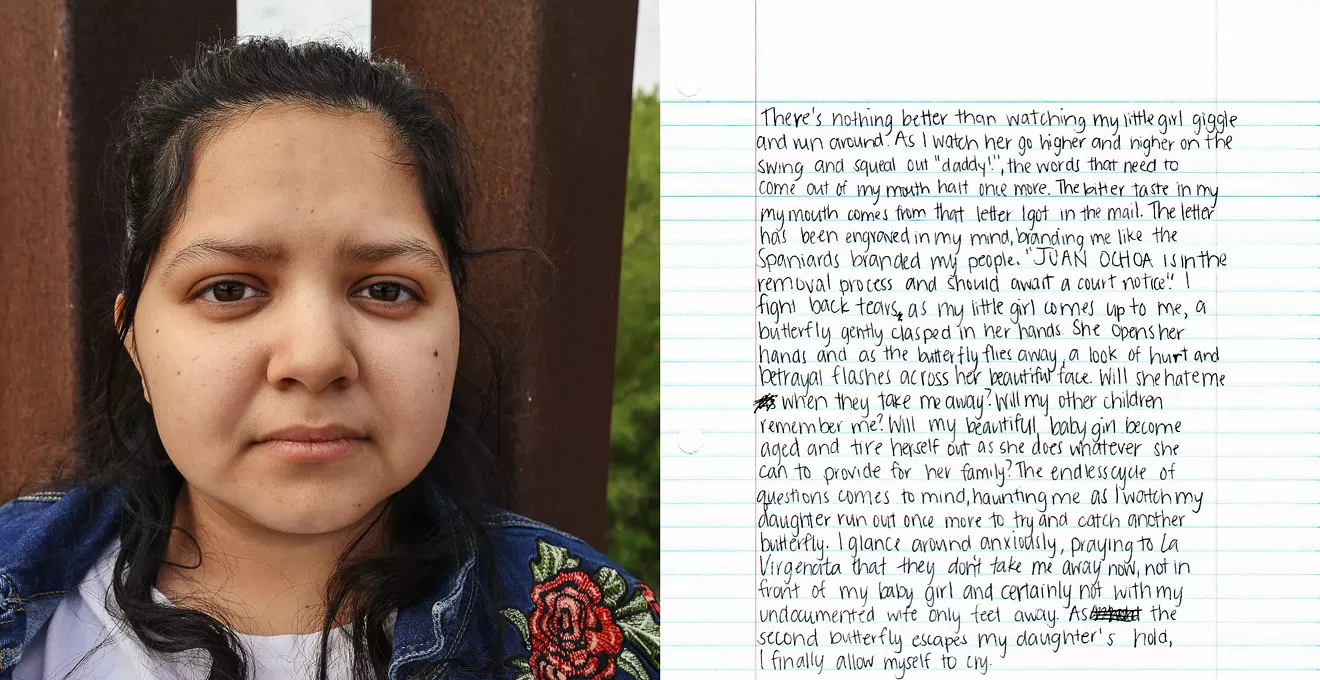 There's nothing better than watching my little girl giggle
and run around. As I watch her go higher and higher on the
swing and squeal out "daddy!", the words that need to
come out of my mouth halt once more. The bitter taste in my
my mouth comes from that letter I got in the mail. The letter
has been engraved in my mind, branding me like the
Spaniards branded my people. "JUAN OCHOA is in the
removal process and should await a court notice." I
fight back tears, as my little girl comes up to me, a
butterfly gently clasped in her hands. She opens her
hands and as the butterfly flies away, a look of hurt and
betrayal flashes across her beautiful face. Will she hate me
when they take me away? Will my other children
remember me? Will my beautiful, baby girl become
aged and tire herself out as she does whatever she
can to provide for her family? The endless cycle of
questions comes to mind, haunting me as I watch my
daughter run out once more to try and catch another
butterfly. I glance around anxiously, praying to La
Virgencita that they don't take me away now, not in
front of my baby girl and certainly not with my
undocumented wife only feet away. As the
second butterfly escapes my daughter's hold,
I finally allow myself to cry.